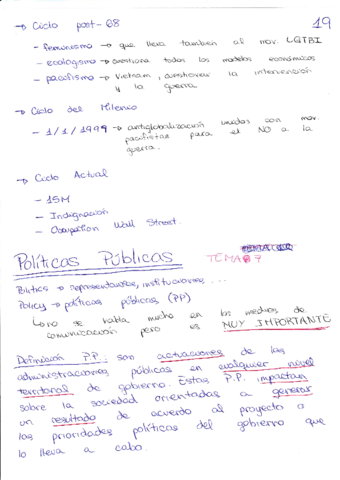 19
→ Ciclo post-68
- feminismo → que lleva también al mov. LGTBI
- ecologismo → cuestiona todos los modelos económicos
- pacifismo → Vietnam, cuestionar la intervención
y la guerra
→ Ciclo del Milenio
- 1/1/1999 → antiglobalización unidas con mov.
pacifistas para el NO a la
guerra.
→ Ciclo Actual
- 15M
- Indignación
- Occupation Wall Street.
Políticas Públicas
TEMA 7
Politics → representantes, instituciones, ...
Policy → políticas públicas (PP)
no se habla mucho en los medios de
comunicación pero es MUY IMPORTANTE
Definición P.P.: son actuaciones de las
administraciones públicas en cualquier nivel
territorial de gobierno. Estas P.P. impactan
sobre la sociedad orientadas a generar
un resultado de acuerdo al proyecto o
las prioridades políticas del gobierno que
lo lleva a cabo.